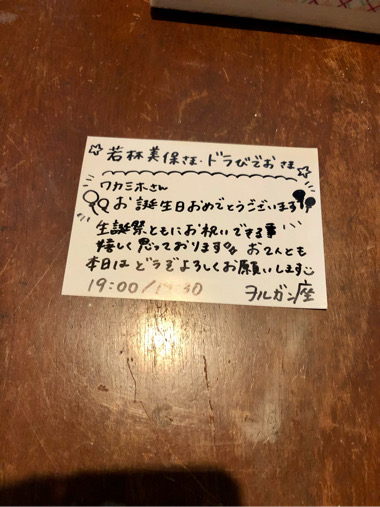 ☆若林美保さま・ドラびでおさま☆
ワカミホさん
お誕生日おめでとうございます
生誕祭ともにお祝いできる事
嬉しく思っております おてんとも
本日はどうぞよろしくお願いします
19:00/19:30 ヲルガン座